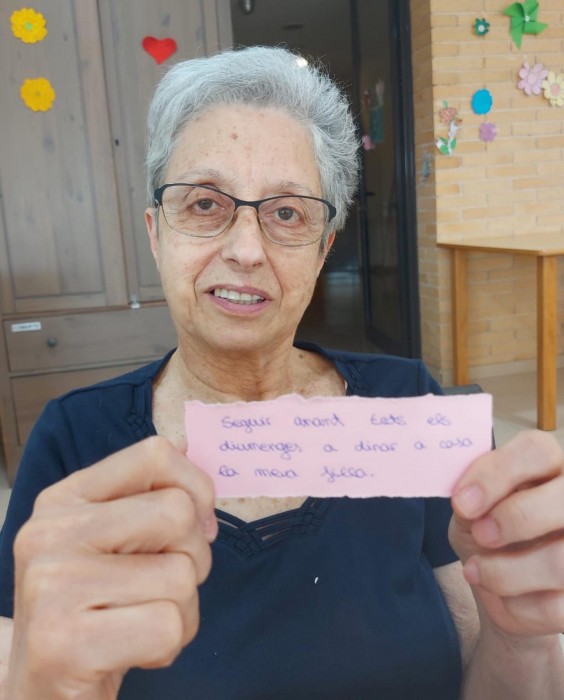 Seguir anant tots els
diumenges a dinar a casa
la meva filla.